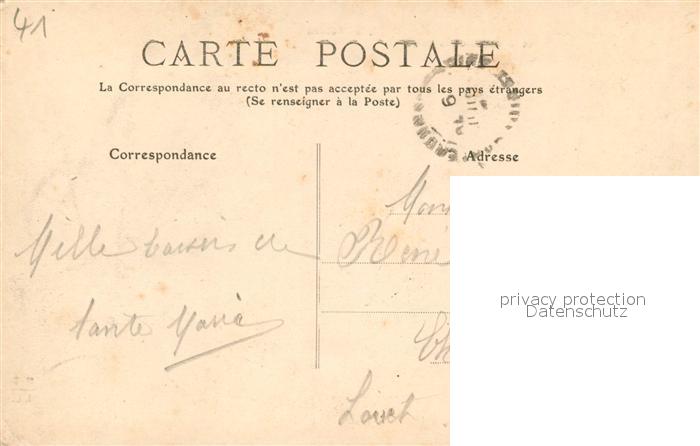 41
CARTE POSTALE
La Correspondance au recto n'est pas acceptée par tous les pays étrangers
(Se renseigner à la Poste)
Correspondance
Mille baisers de
tante Maria
Adresse
René
Loiret
privacy protection
Datenschutz